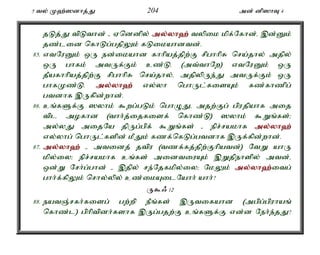 5 வல் முஹ்ஸனாத்து 204 அன் னிஸாவு 4
தடுத்து விடுவான் , ஏனெனில் அல்லாஹ் வலிமை மிக்கோன், இன்னும்
தண்டனை கொடுப்பதிலும் கடுமையானவன்.
85. எவரேனும் ஒரு நன்மையான காரியத்திற்கு சிபாரிசு செய்தால் அதில்
ஒரு பாகம் அவருக்கும் உண்டு. (அவ்வாறே) எவரேனும் ஒரு
தீயகாரியத்திற்கு சிபாரிசு செய்தால், அதிலிருந்து அவருக்கும் ஒரு
பாகமுண்டு. அல்லாஹ் எல்லா பொருட்களையும் கண்காணிப்
பவனாக இருக்கின்றான்.
86. உங்களுக்கு ஸலாம் கூறப்படும் பொழுது, அதற்குப் பிரதியாக அதை
விட அழகான (வார்த்தைகளைக் கொண்டு) ஸலாம் கூறுங்கள்;
அல்லது அதையே திருப்பிக் கூறுங்கள் - நிச்சயமாக அல்லாஹ்
எல்லாப் பொருட்களின் மீதும் கணக்கெடுப்பவனாக இருக்கின்றான்.
87. அல்லாஹ் - அவனைத் தவிர (வணக்கத்திற்குரியவன்) வேறு யாரு
மில்லை; நிச்சயமாக உங்கள் அனைவரையும் இறுதிநாளில் அவன்,
ஒன்று சேர்ப்பான் - இதில் சந்தேகமில்லை; மேலும் அல்லாஹ்வைப்
பார்க்கிலும் சொல்லில் உண்மையுடையோர் யார்?
ருகூஃ 12
88. நயவஞ்சகர்களைப் பற்றி நீங்கள் இருவகையான (அபிப்பிராயங்
கொண்ட) பிரிவினர்களாக இருப்பதற்கு உங்களுக்கு என்ன நேர்ந்தது?